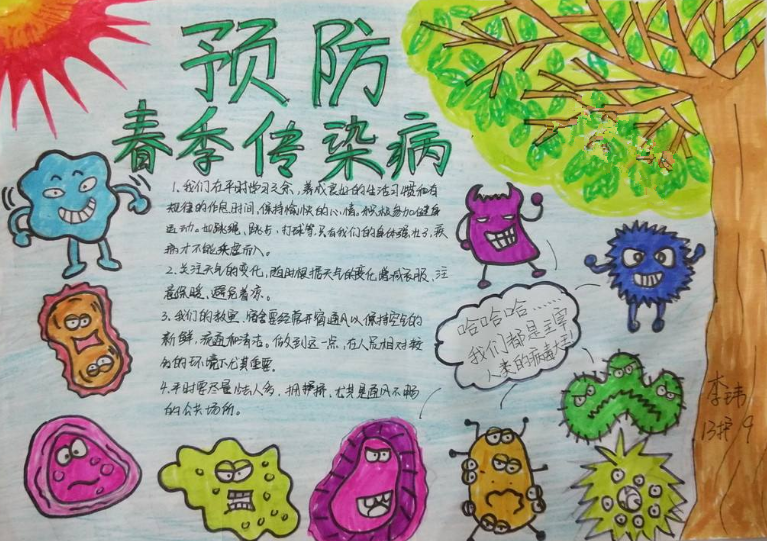 预防
春季传染病
1、我们在平时学习之余，养成良好的生活习惯和有
规律的作息时间，保持愉快的心情。积极参加健身
运动。如跳绳、跳高、打球等，只有我们的身体强壮了，疾
病才不能乘虚而入。
2、关注天气的变化，随时根据天气的变化增减衣服，注
意保暖，避免着凉。
3、我们的教室、宿舍要经常开窗通风以保持空气的
新鲜，流通和清洁。做到这一点，在人员相对较
多的环境下尤其重要。
4、平时要尽量少去人多，拥挤，尤其是通风不畅
的公共场所。
哈哈哈……
我们都是主宰
人类的病菌大王！
李玮
13护9